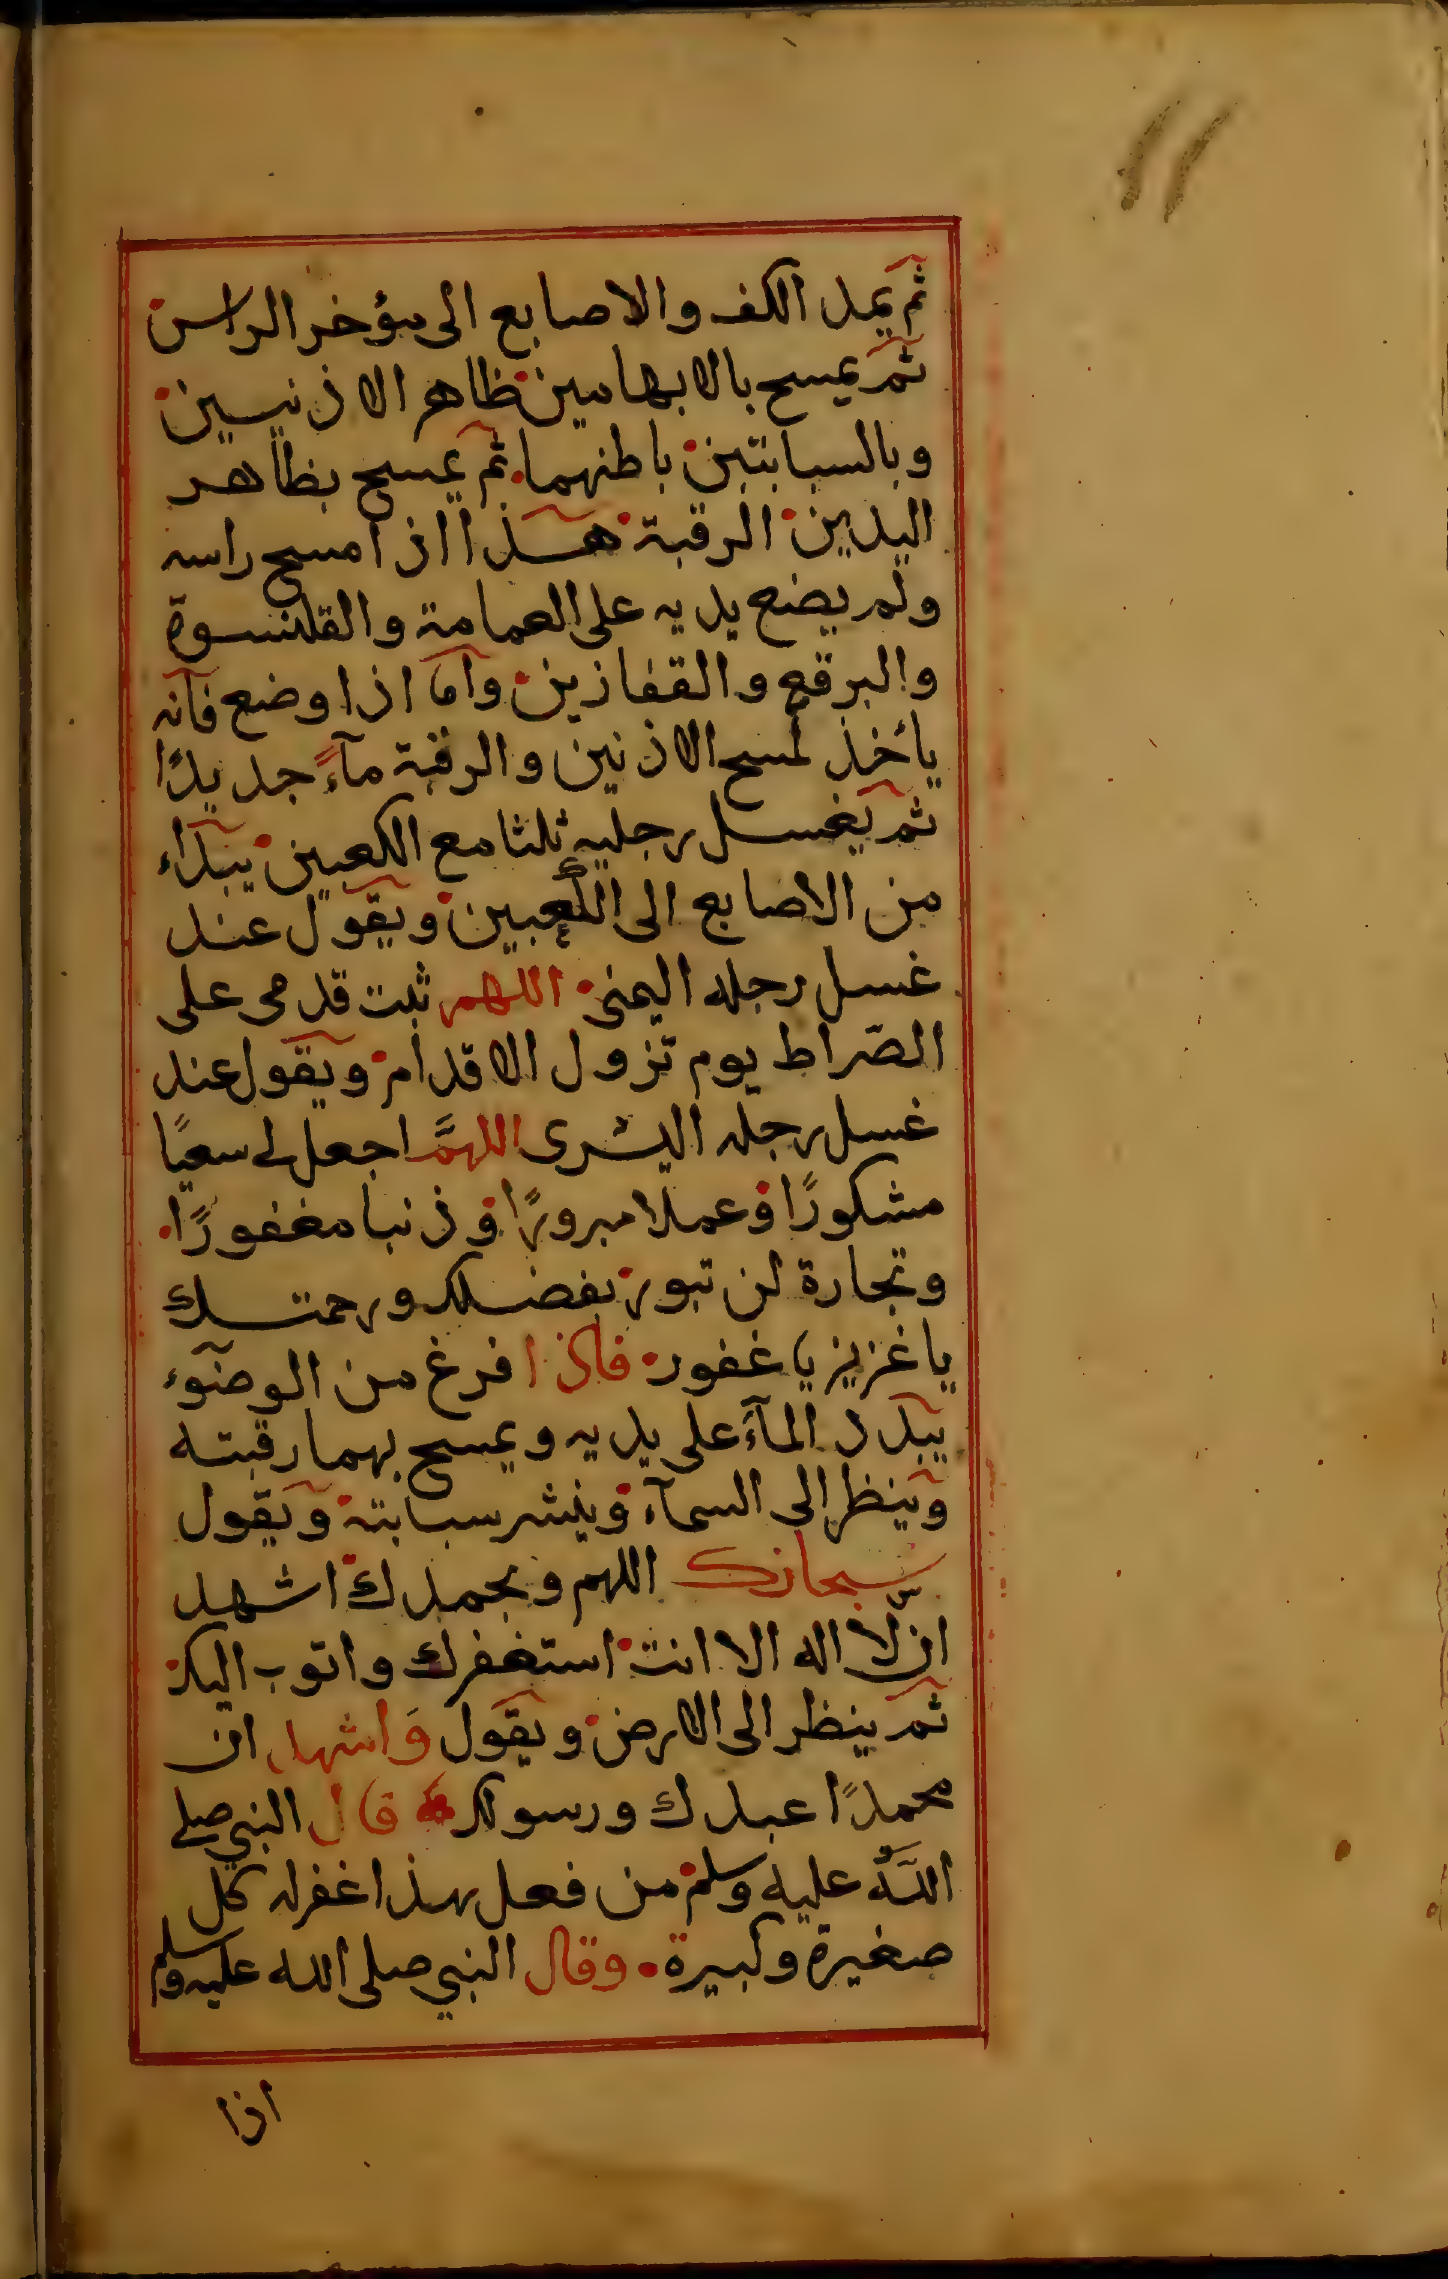 ١١
ثم يمد الكف والاصابع الى مؤخر الراس
ثم يمسح بالابهامين ظاهر الاذنيين
وبالسبابتين باطنهما ثم يمسح بظاهر
اليدين الرقبة هذا اذا مسح راسه
ولم يضع يديه على العمامة والقلنسوة
والبرقع والقفازين واما اذا وضع فانه
يأخذ لمسح الاذنين والرقبة مآءً جديدًا
ثم يغسل رجليه ثلثا مع الكعبين يبداء
من الاصابع الى الكعبين ويقول عند
غسل رجله اليمنى اللهم ثبت قدمى على
الصّراط يوم تزول الاقدام ويقول عند
غسل رجله اليسرى اللهمَّ اجعل لى سعيًا
مشكورًا وعملا مبرورًا وذنبا مغفورًا
وتجارة لن تبور بفضلك ورحمتك
يا عزيز يا غفور فاذا فرغ من الوضوء
يبدد المآء على يديه ويمسح بهما رقبته
وينظر الى السمآء وينشر سبابته ويقول
سبحانك اللهم وبحمدك اشهد
ان لّا اله الا انت استغفرك واتوب اليك
ثم ينظر الى الارض ويقول وَاشهد ان
محمدًا عبدك ورسولك قال النبي صلى
الله عليه وسلم من فعل هذا غفر له كل
صغيرة وكبيرة وقال النبي صلى الله عليه وسلم
اذا